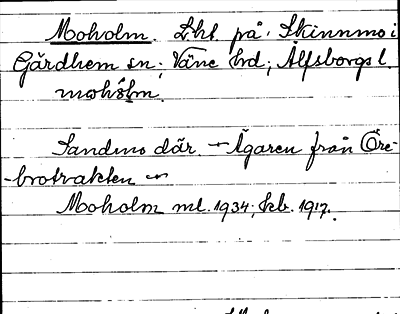 Moholm. Lht. på Skinnmo i
Gärdhem sn; Väne hd; Älfsborgs l.
mohólm.
Sandmo där. — Ägaren från Öre-
-brotrakten —
Moholm ml. 1934; kb. 1917.